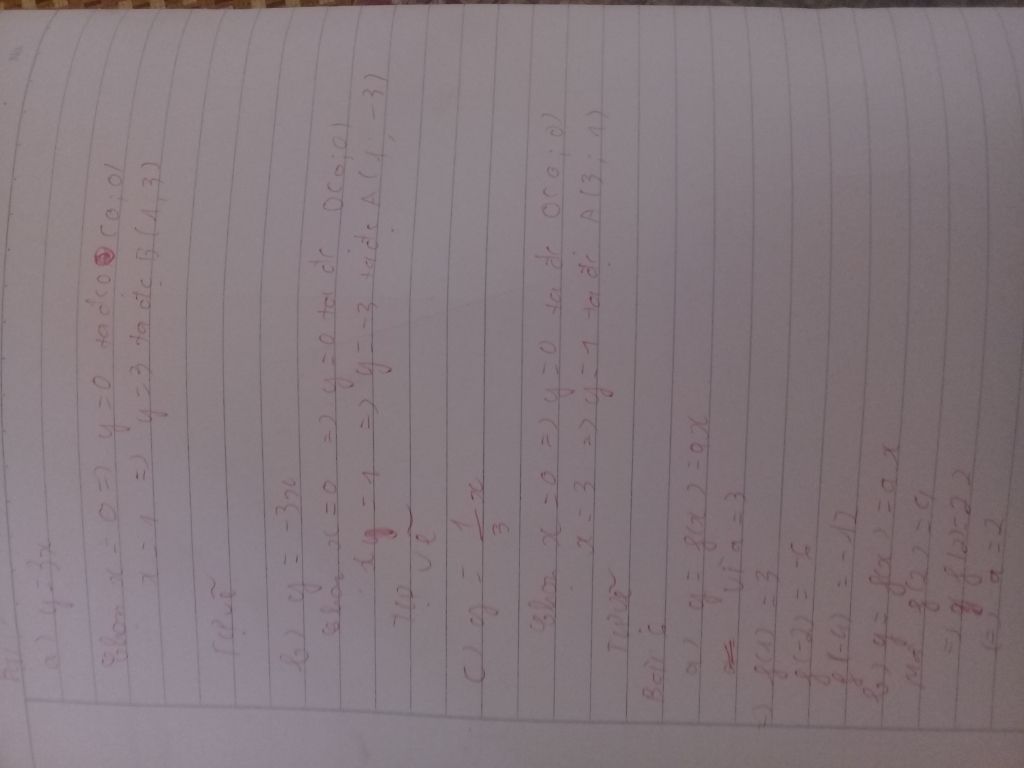 a) y = 3x
Chọn x = 0 => y = 0 ta đc O (0; 0)
x = 1 => y = 3 ta đc B (1; 3)
Tự vẽ
b) y = -3x
Chọn x = 0 => y = 0 ta đc O(0; 0)
x = 1 => y = -3 ta đc A (1; -3)
Tự vẽ
c) y = 1/3 x
Chọn x = 0 => y = 0 ta đc O(0; 0)
x = 3 => y = 1 ta đc A (3; 1)
Tự vẽ
Bài 6
a) y = f(x) = ax
Vì a = 3
=) f(1) = 3
f(-2) = -6
f(-4) = -12
b) y = f(x) = ax
f(2) = 4
=) f(2) = 2.2
(=) a = 2